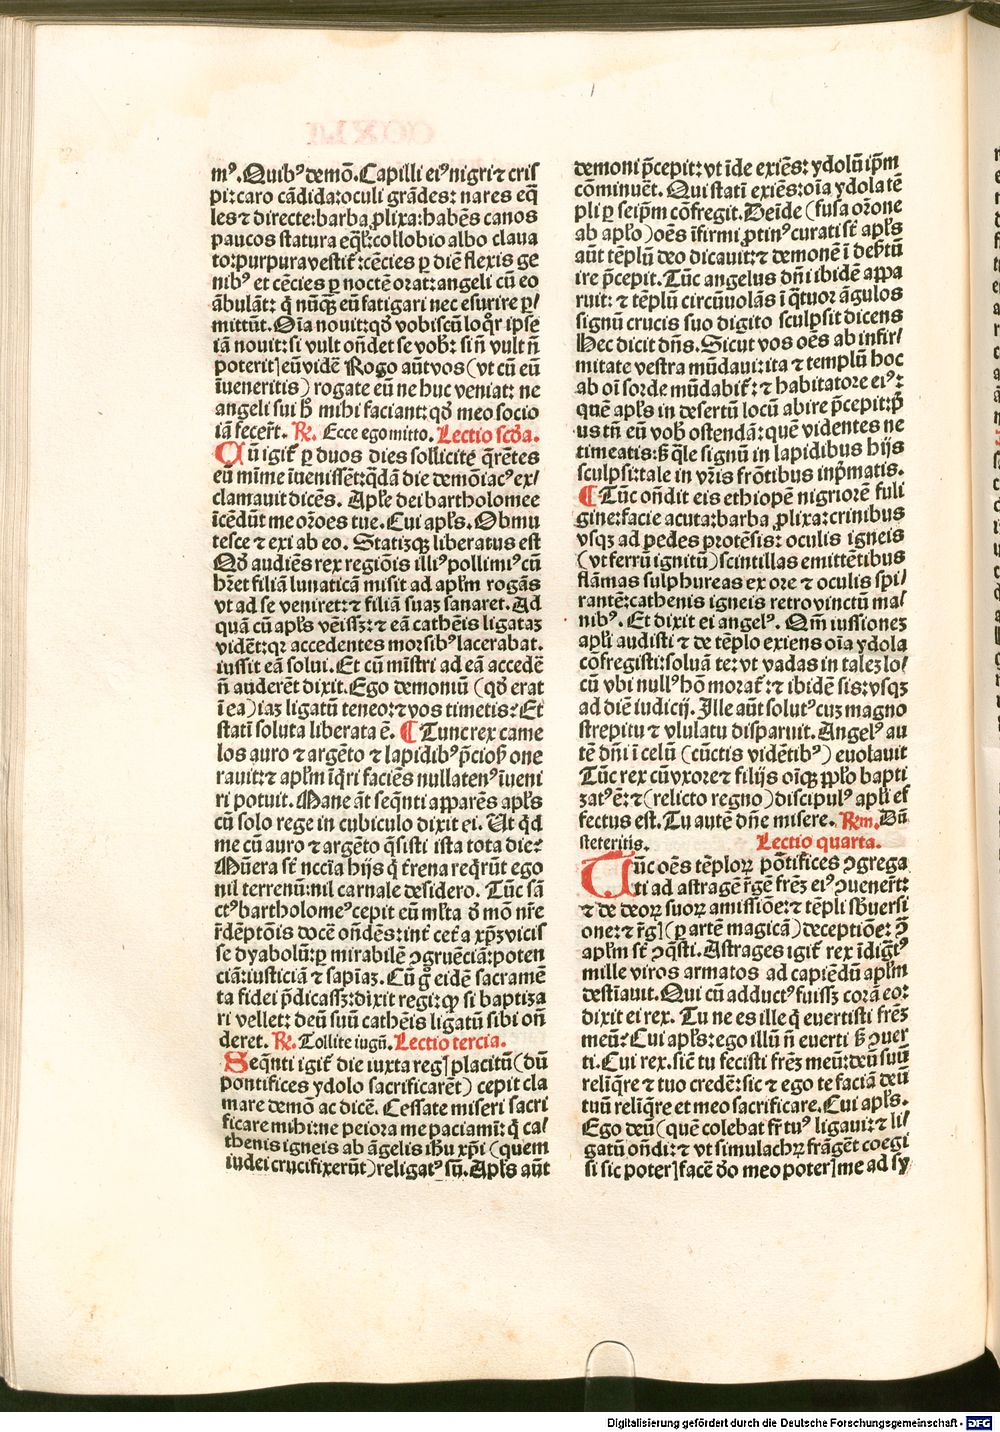 mꝰ. Quibꝰ demō. Capilli eiꝰ nigri ⁊ cris
pi: caro cādida: oculi grādes: nares eq̄
les ⁊ directe: barba ꝓlixa: habēs canos
paucos statura eq̄l': collobio albo claua
to: purpura vestit': cēcies ꝑ diē flexis ge
nibꝰ et cēcies ꝑ noctē orat: angeli cū eo
ābulāt: q̄ nūq̄ꝫ eū fatigari nec esurire ꝑ/
mittūt. Oīa nouit: qð vobiscū loq̊r ipse
iā nouit: si vult oñdet se vob': si ñ vult ñ
poteritꝭ eū vidē Rogo aūt vos (vt cū eū
īueneritis) rogate eū ne huc veniat: ne
angeli sui h̄ mihi faciant: qð meo socio
iā fecer̄t. ℞. Ecce ego mitto. Lectio scða.
Cū igit' ꝑ duos dies sollicite q̄rētes
eū mīme īuenissēt: q̄dā die demōiacꝰ ex/
clamauit dicēs. Apl'e dei bartholomee
īcēdūt me orōes tue. Cui apl's. Obmu
tesce ⁊ exi ab eo. Statizqꝫ liberatus est
Qð audiēs rex regiōis illiꝰ pollimiꝰ cū
hr̄et filiā lunaticā misit ad apl'm rogās
vt ad se veniret: ⁊ filiā suaꝫ sanaret. Ad
quā cū apl's vēissꝫ: ⁊ eā cathēis ligataꝫ
vidēt: qꝛ accedentes morsibꝰ lacerabat.
iussit eā solui. Et cū mīstri ad eā accedē
ñ auderēt dixit. Ego demoniū (qð erat
ī ea) iaꝫ ligatū teneo: ⁊ vos timetis: Et
statī soluta liberata ē. ¶ Tunc rex came
los auro ⁊ argēto ⁊ lapidibꝰ p̄ciosꝭ one
rauit: ⁊ apl'm īq̄ri faciēs nullatenꝰ īueni
ri potuit. Mane āt seq̄nti apparēs apl's
cū solo rege in cubiculo dixit ei. Ut qd̄
me cū auro ⁊ argēto q̄sisti ista tota die:
Mūera st̄ nccīa hijs q̄ t'rena reqrūt ego
nil terrenū: nil carnale desidero. Tūc sā
ctꝰ bartholomeꝰ cepit eū ml'ta ð mō nr̄e
rdēptōis docē oñdēs: int' cet'a xp̄ꝫ vicis
se dyabolū: ꝑ mirabilē ꝯgruēciā: poten
ciā: iusticiā ⁊ sapīaꝫ. Cū g̊ eidē sacramē
ta fidei p̄dicassꝫ: dixit regi: ꝙ si baptiza
ri vellet: deū suū cathēis ligatū sibi oñ
deret. ℞. Tollite iugū. Lectio tercia.
Seq̄nti igit' die iuxta regꝭ placitū (dū
pontifices ydolo sacrificarēt) cepit cla
mare demō ac dicē. Cessate miseri sacri
ficare mihi: ne peiora me paciamī: q̄ ca/
thenis igneis ab āgelis ih̄u xp̄i (quem
iudei crucifixerūt) religatꝰ sū. Apl's aūt
demoni p̄cepit: vt īde exiēs: ydolū ip̄m
cōminuēt. Qui statī exiēs: oīa ydola tē
pli ꝑ seip̄m cōfregit. Deīde (fusa orōne
ab apl'o) oēs īfirmi ꝓtinꝰ curati st̄ apl's
aūt tēplū deo dicauit: ⁊ demonē ī deb'tū
ire p̄cepit. Tūc angelus dn̄i ibidē appa
ruit: ⁊ tēplū circūuolās ī q̄tuor āgulos
signū crucis suo digito sculpsit dicens
Hec dicit dn̄s. Sicut vos oēs ab infir/
mitate vestra mūdaui: ita ⁊ templū hoc
ab oī sorde mūdabit': ⁊ habitatore eiꝰ:
quē apl's in desertū locū abire p̄cepit: p̄
us tn̄ eū vob' ostendā: quē videntes ne
timeatis: sꝫ q̄le signū in lapidibus hijs
sculpsi: tale in vr̄is frōtibus inp̄matis.
¶ Tūc oñdit eis ethiopē nigriorē fuli
gine: facie acuta: barba ꝓlixa: crinibus
vsqꝫ ad pedes protēsis: oculis igneis
(vt ferrū ignitū) scintillas emittētibus
flāmas sulphureas ex ore ⁊ oculis spi/
rantē: cathenis igneis retro vinctū ma/
nibꝰ. Et dixit ei angelꝰ. Qm̄ iussioneꝫ
apl'i audisti ⁊ de tēplo exiens oīa ydola
cōfregisti: soluā te: vt vadas in taleꝫ lo/
cū vbi nullꝰ hō morat': ⁊ ibidē sis: vsqꝫ
ad diē iudicij. Ille aūt solutꝰ cuꝫ magno
strepitu ⁊ vlulatu disparuit. Angelꝰ au
tē dn̄i ī celū (cūctis vidētibꝰ) euolauit
Tūc rex cū vxore ⁊ filijs oīqꝫ ppl'o bapti
zatꝰ ē: ⁊ (relicto regno) discipulꝰ apl'i ef
fectus est. Tu autē dn̄e misere. ℞m. Dū
steteritis. Lectio quarta.
Tūc oēs tēploꝝ pōtifices ꝯgrega
ti ad astragē r̄gē fr̄eꝫ eiꝰ ꝯuener̄t:
⁊ de deoꝝ suoꝝ amissiōe: ⁊ tēpli sb'uersi
one: ⁊ r̄gꝭ (ꝑ artē magicā) deceptiōe: ꝯ̄
apl'm st̄ ꝯq̄sti. Astrages igit' rex īdigtꝰ
mille viros armatos ad capiēdū apl'm
destīauit. Qui cū adductꝰ fuissꝫ corā eo:
dixit ei rex. Tu ne es ille q̄ euertisti fr̄eꝫ
meū: Cui apl's: ego illū ñ euerti sꝫ ꝯuer
ti. Cui rex. sic̄ tu fecisti fr̄eꝫ meū: deū suū
relīq̄re ⁊ tuo credē: sic ⁊ ego te faciā deū
tuū relīq̄re et meo sacrificare. Cui apl's.
Ego deū (quē colebat fr̄ tuꝰ ligaui: ⁊ li/
gatū oñdi: ⁊ vt simulachꝝ frāgēt coegi
si sic poterꝭ facē ðo meo poterꝭ me ad sy
Digitalisierung gefördert durch die Deutsche Forschungsgemeinschaft - DFG